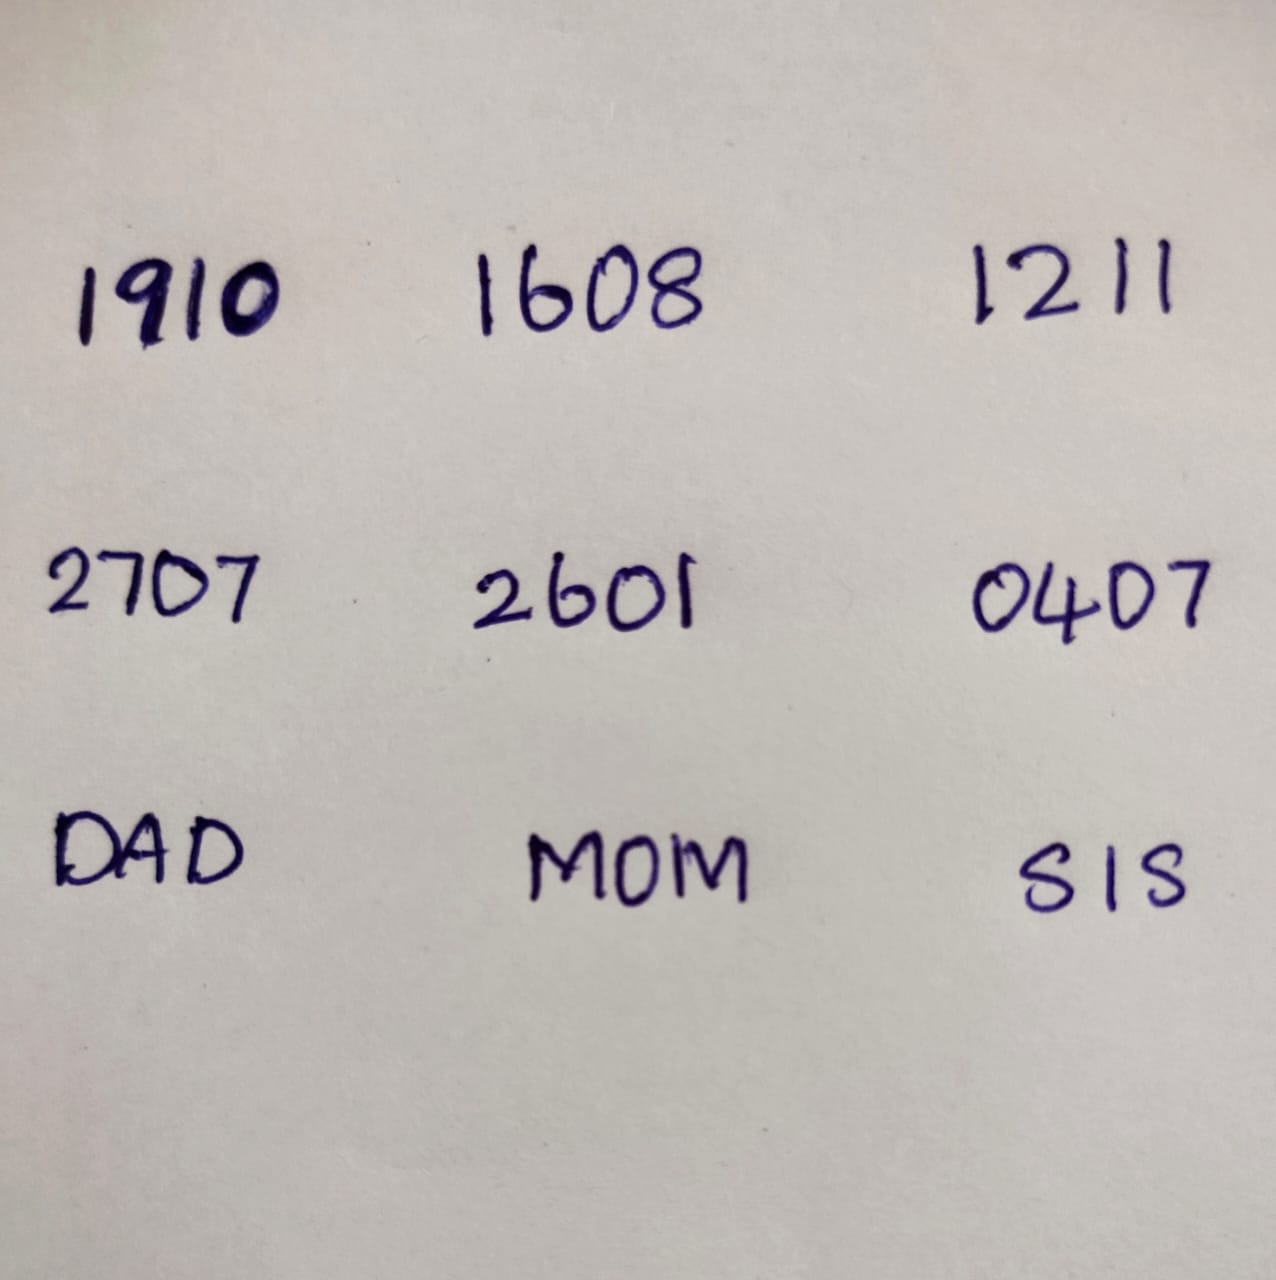 1910 1608 1211
2707 2601 0407
DAD MOM SIS